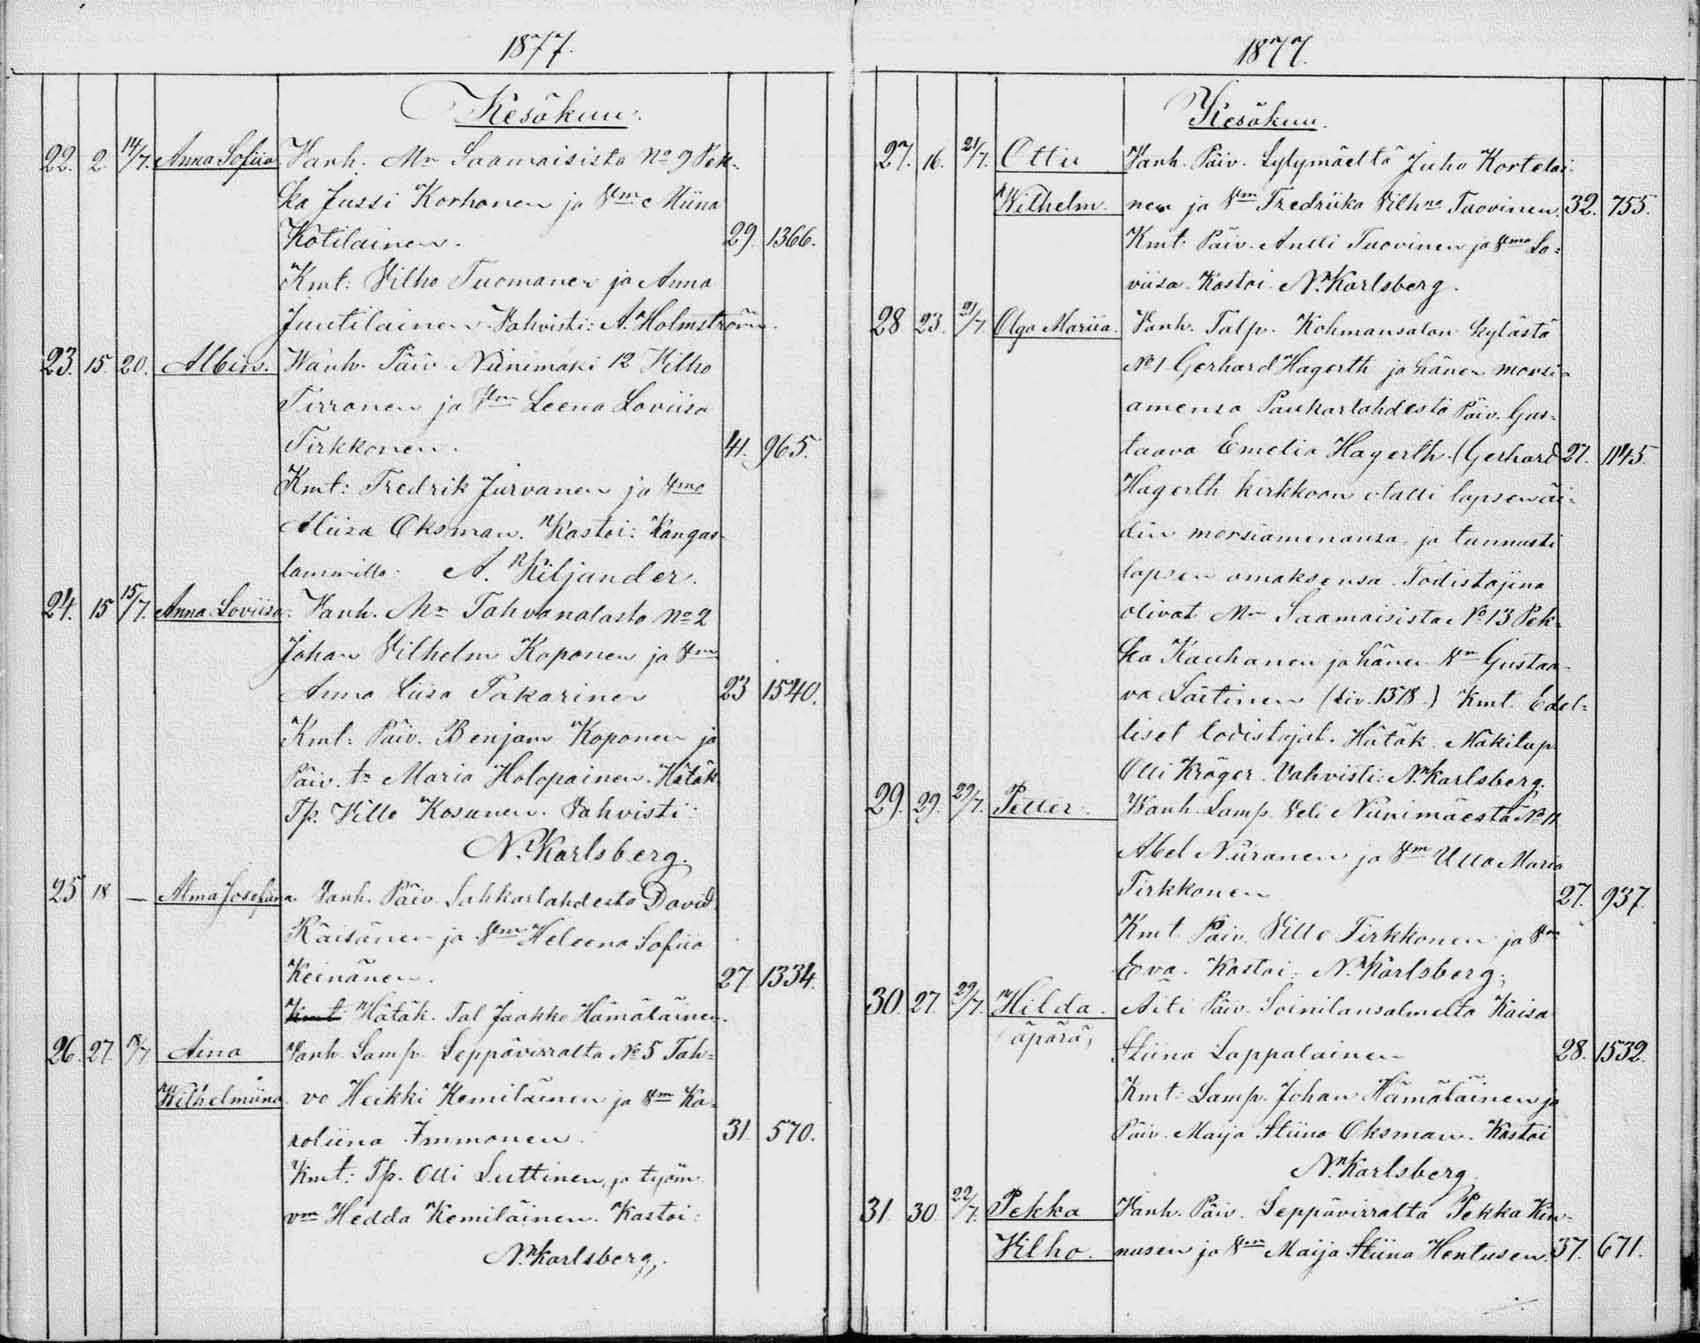 1877.
Kesäkuu.
22. 2. 14/7. Anna Sofiia. Vanh. Mn Saamaisista No 9 Pek-
ka Jussi Korhonen ja Vm Miina
Kotilainen. 29. 1366.
Kmt: Vilho Tuomanen ja Anna
Juutilainen. Vahvisti: A. Holmström.
23. 15. 20. Albin. Wanh. Päiv Niinimäki 12 Vilho
Tirronen ja Vm Leena Loviisa
Tirkkonen. 41. 965.
Kmt: Fredrik Jurvanen ja Vmo
Miisa Oksman. Kastoi: Kangas-
lammilla. A. Kiljander.
24. 15 15/7. Anna Loviisa. Vanh. Mn Tahvanalasta No 2
Johan Vilhelm Koponen ja Vm
Anna Liisa Takarinen 23 1540.
Kmt: Päiv. Benjam Koponen ja
Päiv. tr Maria Holopainen. Hätäk.
Tp. Ville Kosunen. Vahvisti:
N. Karlsberg.
25 18 — Alma Josefiina. Vanh. Päiv. Sahkarlahdesta David
Räisänen ja Vm Heleena Sofiia
Keinänen. 27 1334.
Kmt Hätäk. Tal Jaakko Hämäläinen.
26. 27 8/7 Aina Vanh. Lamp. Leppävirralta No 5 Tah-
Wilhelmiina. vo Heikki Kemiläinen ja Vm Ka-
roliina Immonen. 31. 570.
Kmt: Tp. Olli Luttinen, ja työm.
vm Hedda Kemiläinen. Kastoi:
N. Karlsberg.
1877.
Kesäkuu.
27. 16. 21/7. Otto Vanh. Päiv. Lylymäeltä Juho Kortelai-
Wilhelm. nen ja Vm Fredriika Vilhna Tuovinen. 32. 755.
Kmt: Päiv. Antti Tuovinen ja Vmo Lo-
viisa. Kastoi N. Karlsberg.
28 23. 21/7. Olga Mariia. Vanh. Talp. Kohmansalon kylästä
No 1 Gerhard Hagerth ja hänen morsi-
amensa Paukarlahdesta Päiv. Gus-
taava Emelia Hagerth. (Gerhard 27. 1145.
Hagerth kirkkoon otatti lapsen äi-
din morsiamenansa, ja tunnusti
lapsen omaksensa. Todistajina
olivat Mn Saamaisista No 13 Pek-
ka Kauhanen ja hänen Vm Gustaa-
va Laitinen (siv. 1378.) Kmt. Edel-
liset todistajat. Hätäk. Mäkitup
Olli Kröger. Vahvisti: N. Karlsberg.
29. 29. 29/7. Petter. Wanh. Lamp. Veli Niinimäestä No 11
Abel Niiranen ja Vm Ulla Maria
Tirkkonen 27. 937.
Kmt Päiv. Ville Tirkkonen ja Vm
Eva. Kastoi: N. Karlsberg.
30. 27. 29/7. Hilda. Äiti Päiv. Soinilansalmelta Kaisa
(äpärä) Stiina Lappalainen 28. 1532.
Kmt: Lamp. Johan Hämäläinen ja
Päiv. Maija Stiina Oksman. Kastoi
N. Karlsberg.
31. 30. 22/7. Pekka Vanh. Päiv. Leppävirralta Pekka Kin-
Vilho. nusen ja Vm Maija Stiina Hentusen. 37. 671.